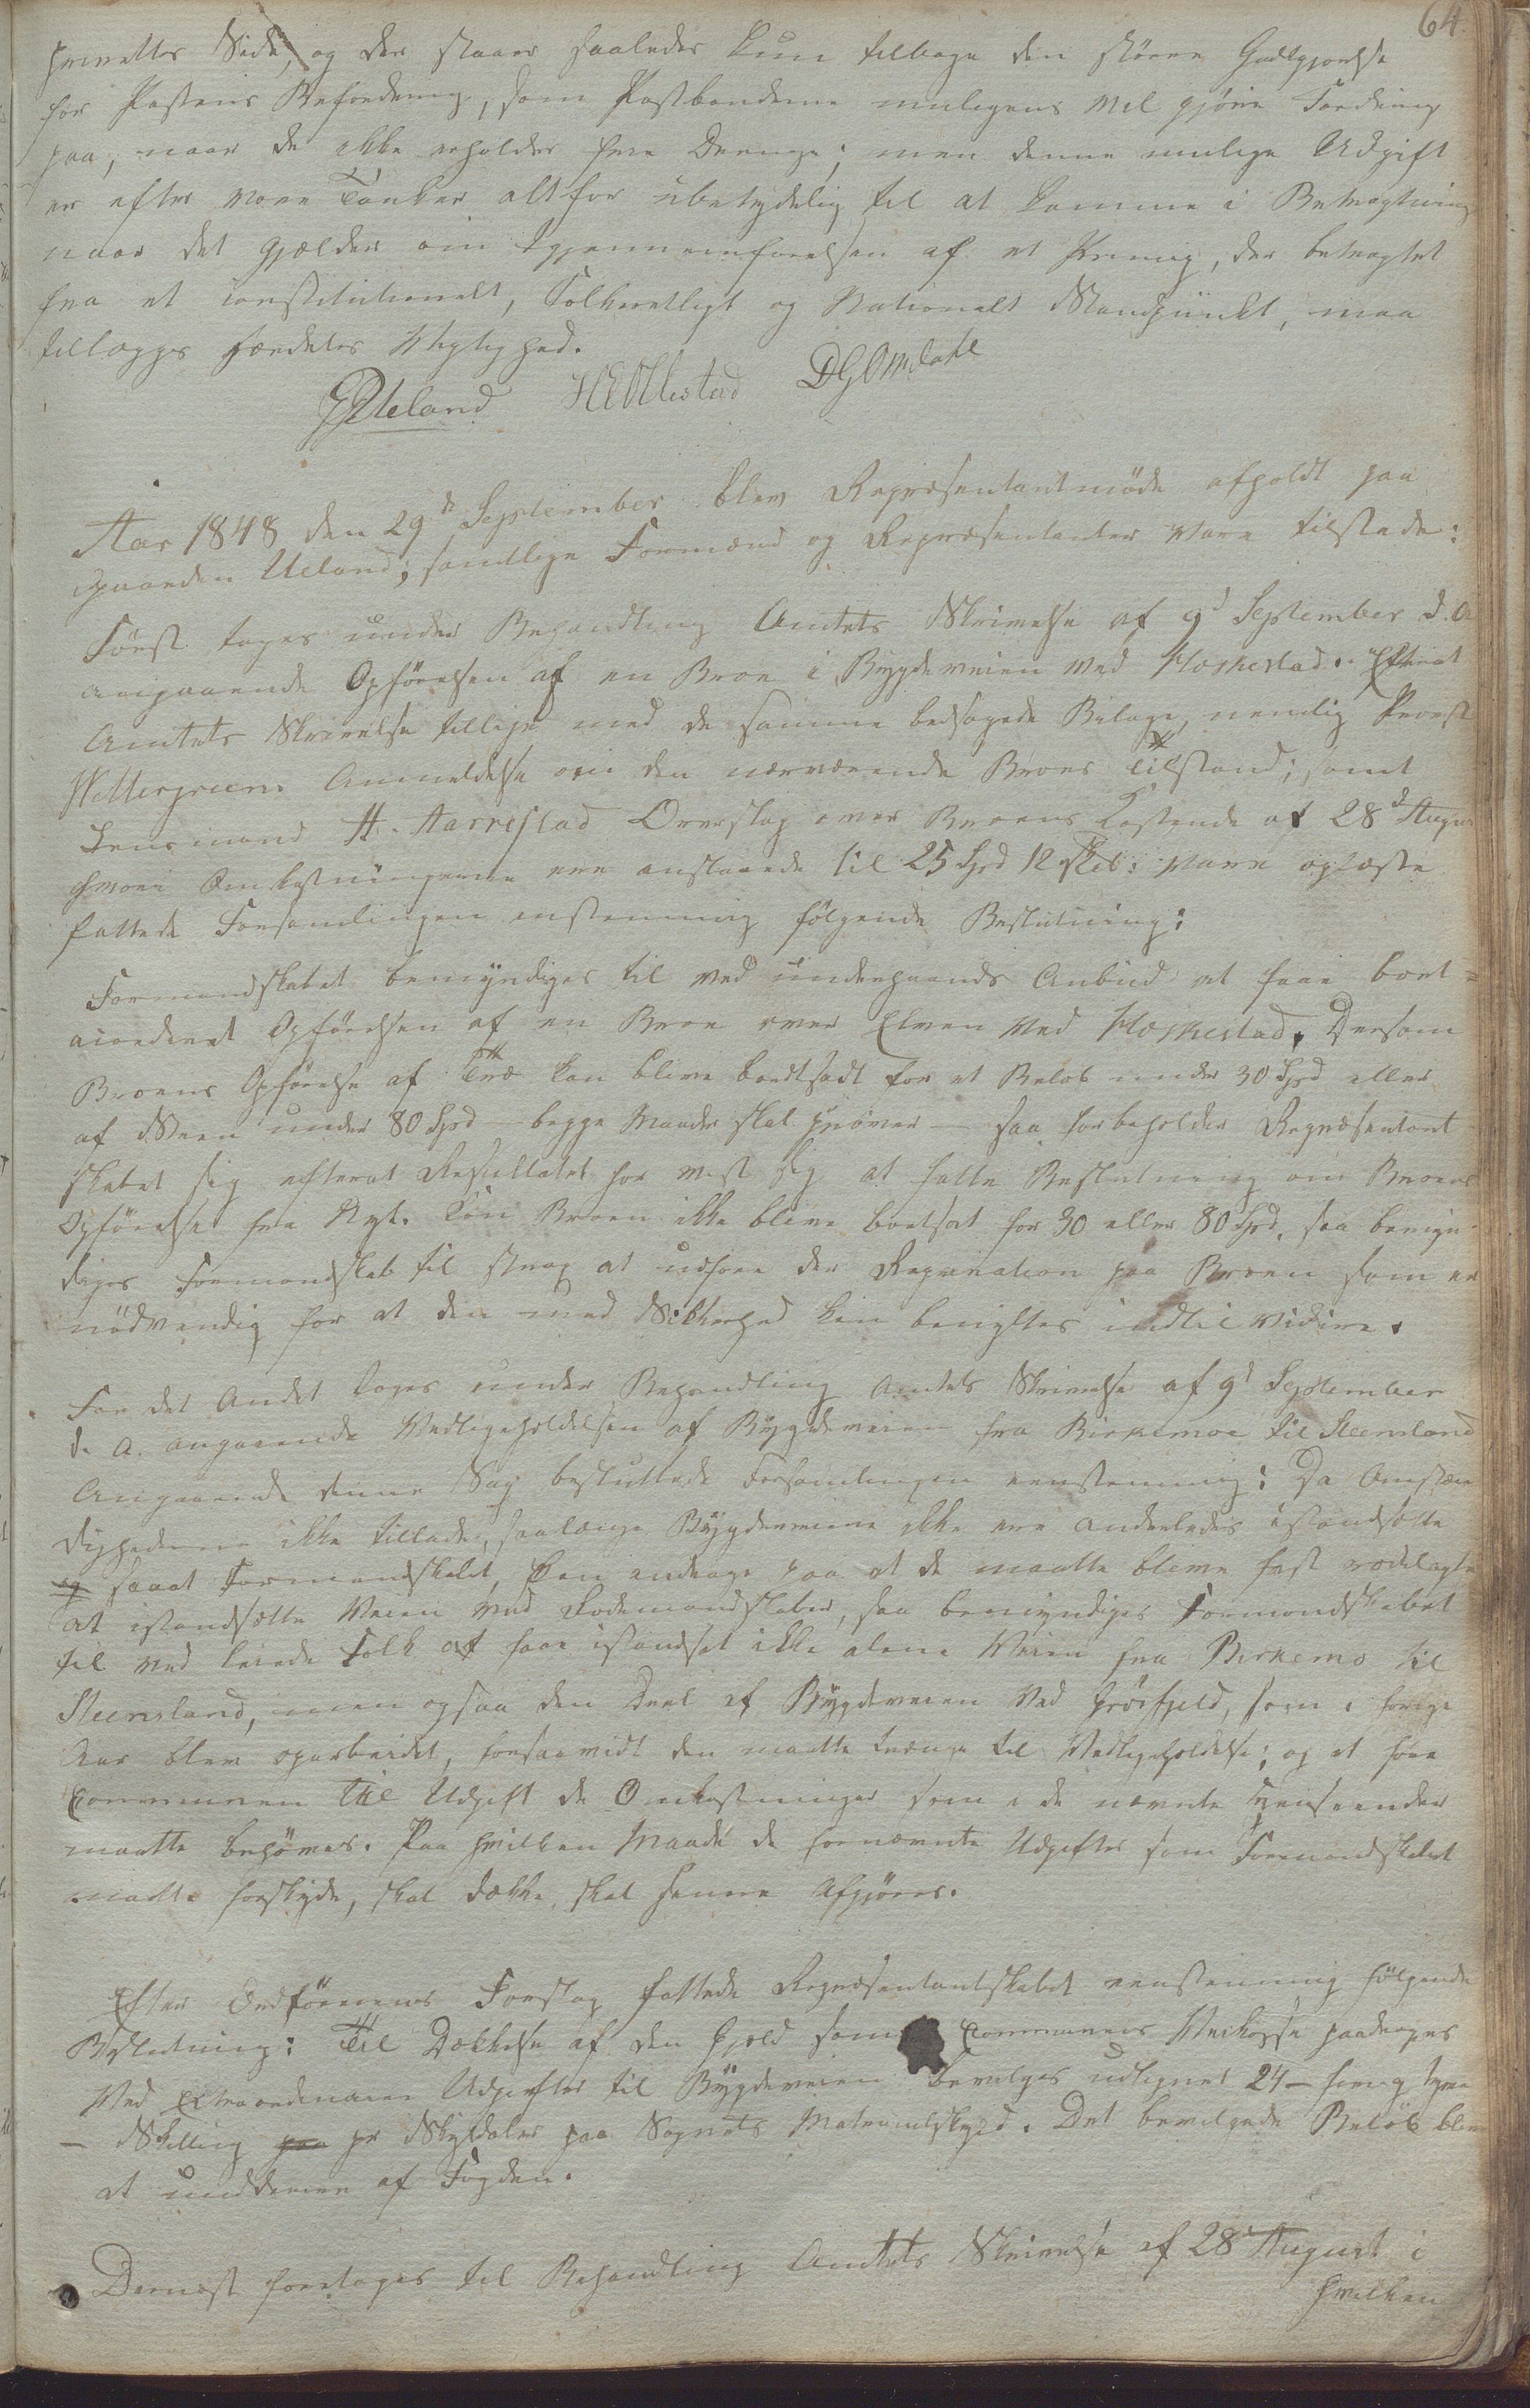 64.
henrettes Side, og der staaer saaledes kun tilbage den större Godtgjörelse
for Postens Befordring, som Postbönderne muligens vil gjöre Fordring
paa, naar de ikke erholder frie Drenge; men denne mulige Udgift
er efter vore Tanker altfor ubetydelig til at komme i Betragtning
naar det gjælder om Gjennemförelsen af et Princip, der betragtet
fra et constitutionelt, Folkeretligt og Nationalt Standpunkt, maa
tillægges særdeles Vigtighed.
GPUeland HEOllestad DGOmdahl
Aar 1848 den 29de September blev Repræsentantmöde afholdt paa
gaarden Ueland; samtlige Formænd og Repræsentanter vare tilstæde:
Först toges under Behandling Amtets Skrivelse af 9d September d.A
angaaende Opförelsen af en Broe i Bygdeveien ved Hæskestad. Efterat
Amtets Skrivelse tillige med de samme ledsagede Bilage, nemlig Provst
Wettergreens Anmeldelse om den nærværende Broes Tilstand; samt
Lensmand H. Aarrestad Overslag over Broens Kostende af 28d August
hvori Omkostningerne ere anslaaede til 25 Spd 12 skil: vare oplæste
fattede Forsamlingen enstemmig fölgende Beslutning:
Formandskabet bemyndiges til ved underhaands Anbud at faae bort=
accorderet Opförelsen af en Broe over Elven ved Hæskestad. Dersom
Broens Opförelse af Træ kan blive bortsadt for et Belöb under 30 Spd eller
af Steen under 80 Spd – begge Maader skal pröves – saa forbeholder Repræsentant
skabet sig efterat Resultatet har viist sig at fatte Beslutning om Broens
Opförelse fra Nyt. Kan Broen ikke blive bortsat for 30 eller 80 Spd, saa bemyn
diges Formandskab til strax at udföre den Reparation paa Broen som er
nödvendig for at den med Sikkerhed kan benyttes indtil videre.
For det Andet toges under Behandling Amtets Skrivelse af 9d September
d. A. angaaende Vedligeholdelsen af Bygdeveien fra Birkemoe til Steensland
Angaaende denne Sag besluttede Forsamlingen eenstemmig: Da Omstæn
dighederne ikke tillade, saalænge Bygdeveiene ikke ere anderledes istandsatte
og saaat Formandskabet kan andrage paa at de maatte blive fast rodelagte
at istandsætte Veien ved Rodemandskaber, saa bemyndiges Formandskabet
til ved leiede Folk at faae istandsat ikke alene Veien fra Birkemo til
Steensland, men ogsaa den Deel af Bygdeveien ved Gröifjeld, som i forrige
Aar blev oparbeidet, forsaavidt den maatte trænge til Vedligeholdelse; og at före
Communen til Udgift de Omkostninger som i de nævnte Henseender
maatte behöves. Paa hvilken Maade de fornævnte Udgifter som Formandskabet
maatte forskyde, skal dække, skal senere afgjöres.
Efter Ordförerens Forslag fattede Repræsentantskabet eenstemmig fölgende
Beslutning: Til Dækkelse af den Gjeld som Communens Veikasse paadrages
ved Extraordinaire Udgifter til Bygdeveien bevilges udlignet 24 – fire og tyve
– Skilling paa pr Skyldaler paa Sognets Matriculskyld. Det bevilgede Belöb bliver
at inddrive af Fogden.
Dernæst foretages til Behandling Amtets Skrivelse af 28 August i
hvilken